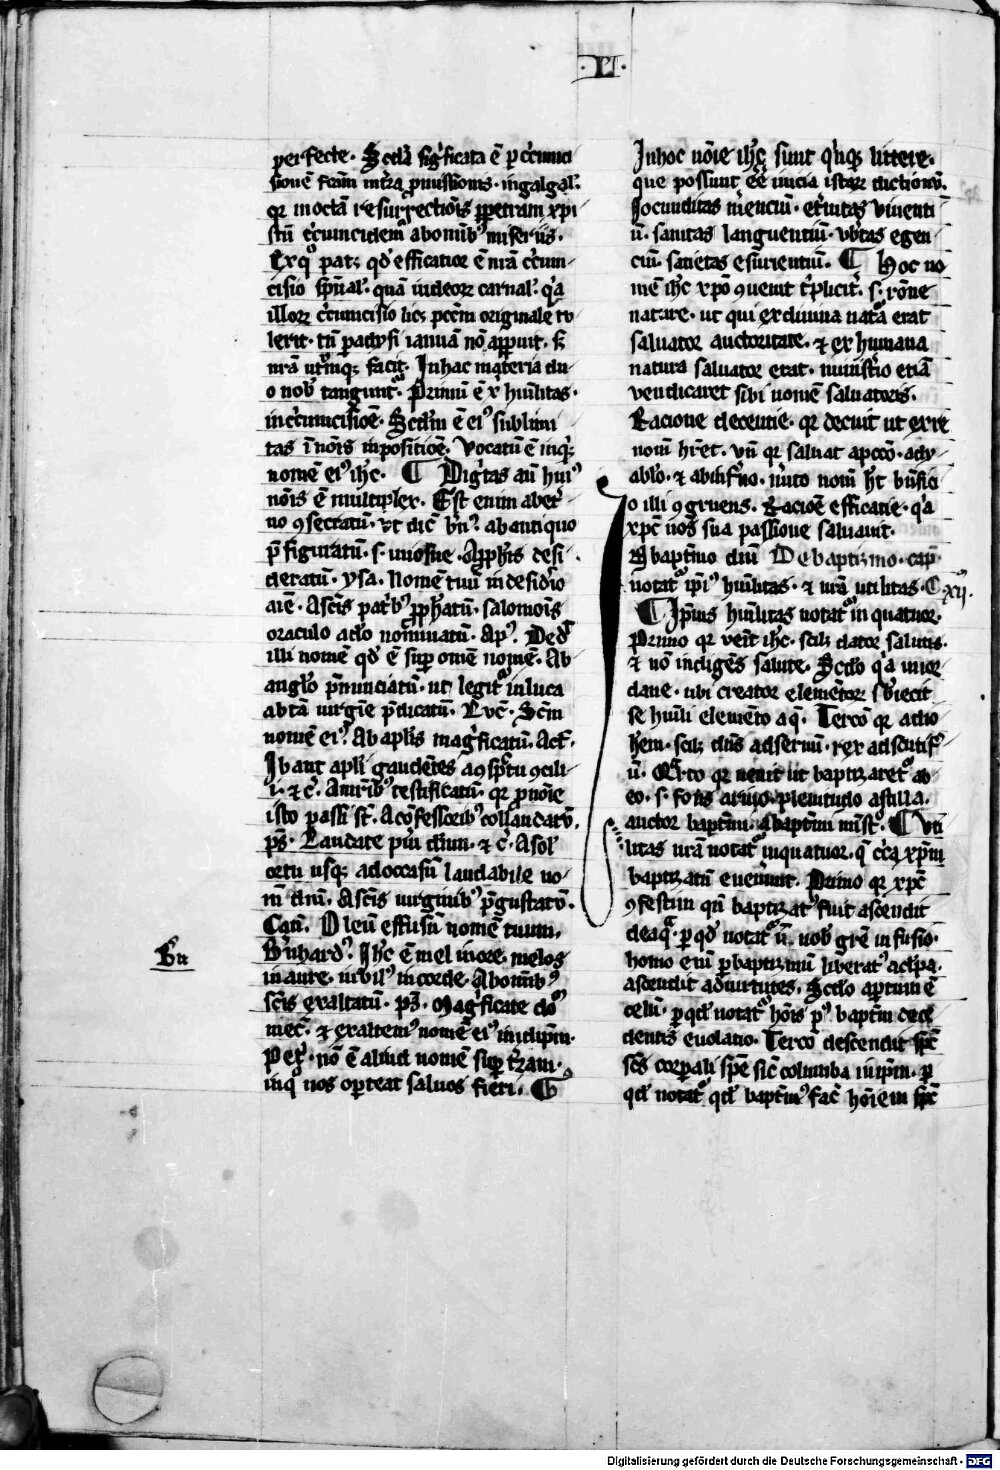 · LI ·
perfecte. Scd'a sig'ficata ē p ccūnci
sionē fcām int'ra pmissionis. in galgal'.
qr in octā resurrectiōis ppetuam xpi
stū c'cūncidem' ab omīb' miseriis.
Ex q° pat; qd' efficatior ē nrā c'cūm
cisio sp'ual'. quā iudeor carnal'. q'a
illor c'cūmcisio lic; pccm originale tu
lerit. tn̄ padysi ianuā nō apperuit. s;
nrā ut'mq; facit. In hac mat'eria du
o nob' tangunt'. Primū ē x' hūil'itas.
in c'cūmcisiōe. Scd'm ē ei' sublimi
tas ī nōis impositiōe. Vocatū ē inq;
nomē ei' ih'c. ¶ Dig'tas aū hui'
nōis ē multiplex. Est enim ab et'
no 9secratū. vt dic' b'n'. ab antiquo
p̄figuratū. s. in iosue. A pph'is desi
deratū. ysa. Nomē tuū in desid'io
aīe. A sc̄is pat'b' pph'atū. salomōis
oraculo ad'o nominatū. Ap'. Ded'
illi nomē qd' ē sup omē nomē. Ab
angl'o p̄nunciatū. ut legit' in luca
ab tā uirgīe p̄dicatū. Luc'. Sc̄m
nomē ei'. Ab aplis mag'ficatū. Act'.
Ibant apl'i gaudētes a 9sp'tu 9cili
i. & c'. A mr'ib' testificatū. qr p noīe
isto passi st'. A cōfessorib' collaudatū.
ps'. Laudate pu'i dnm. & c'. A sol'
ortu usq; ad occasū laudabile no
m̄ dnī. A sc̄is uirginib' p̄gustatū.
Cant'. Oleū effusū nomē tuum.
B'nhard'. Ih'c ē mel in ore. melos
in aure. iubil' in corde. Ab omīb'
sc̄is exaltatū. ps'. Mag'ficate dō'
mec'. & exaltem' nomē ei' in idipm.
Pet'. nō ē aliud nomē sup t'ram.
in q° nos oporteat saluos fieri. ¶
Bn
In hoc nōie ih'c sunt q'nq; littere.
que possunt eē inicia istar dictionū.
Iocunditas merenciū. et'nitas viuenti
ū. sanitas languentiū. vb'tas egen
ciū. satietas esurientiū. ¶ Hoc no
mē ih'c xpo 9uenit t'plicit'. s. rōne
nature. ut qui ex diuina nat'a erat
saluator auctoritate. & ex humana
natura saluator erat. minist'io etiā
vendicaret sibi nomē saluatoris.
Racione decentie. qr decuit ut ex re
nom h'ret. vn̄ qr saluat a pccō. a dy
abl'o. & ab inf'no. m'ito nom h't b'nfici
o illi 9gruens. Racioē efficatie. q'a
xpc' nos sua passione saluauit.
A baptismo dnī De baptismo. cap'.
notat' ipi' hūilitas. & nrā utilitas. ¶ xij.
¶ Ipius hūilitas notat' in quatuor.
Primo qr venit ih'c. scil; dator salutis.
& nō indigēs salute. Scd'o q'a in ior
dane. ubi creator elementor s'biecit
se hūili elemēto aq̄. Tercō qr ad io
hem. scil; dn̄s ad seruū. rex ad scutif'
ū. Qrto qr uenit ut baptizaret' ab
eo. s. fons a riuo. plenitudo a stilla.
auctor baptismi. a baptismi mīst°. ¶ Vti
litas nrā notat' in quatuor. q̄ c'ca xp̄m
baptizatū euenerunt. Primo qr xpc'
9festim qn̄ baptizat' fuit ascendit
de aqa. p qd' notat' ū. nob' gr'e infusio.
homo enī p baptizmū liberat' a cl'pa.
ascendit ad uirtutes. Scd'o aptum ē
celū. p qd' notat' hōis p' baptm dece
dentis euolatio. Tercō descendit spc'
sc̄s corpali spē sic' columba in ipm. p
qd' notat' qd' baptm' fac' hōiem spc'